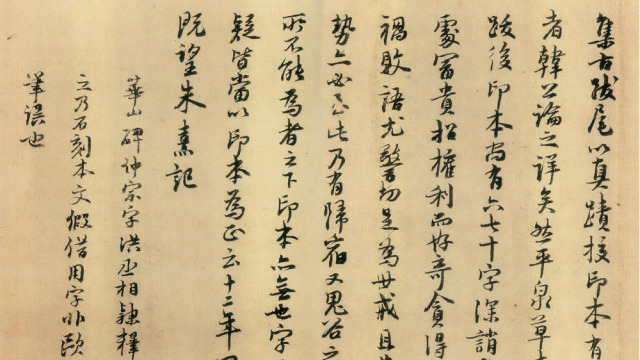 集古跋尾以真蹟校印本有
者韓公論之詳矣然平泉草
跋後印本尚有六七十字深誚
處富貴招權利而好奇貪得
禍敗語尤警切足為世戒且
勢亦必至此乃有歸宿又鬼谷之
所不能為者之下印本亦無也字
疑皆當以印本為正云十二年
既望朱熹記
華山碑仲宗字洪丞相隸釋
云乃石刻本文假借用字非歐
筆誤也